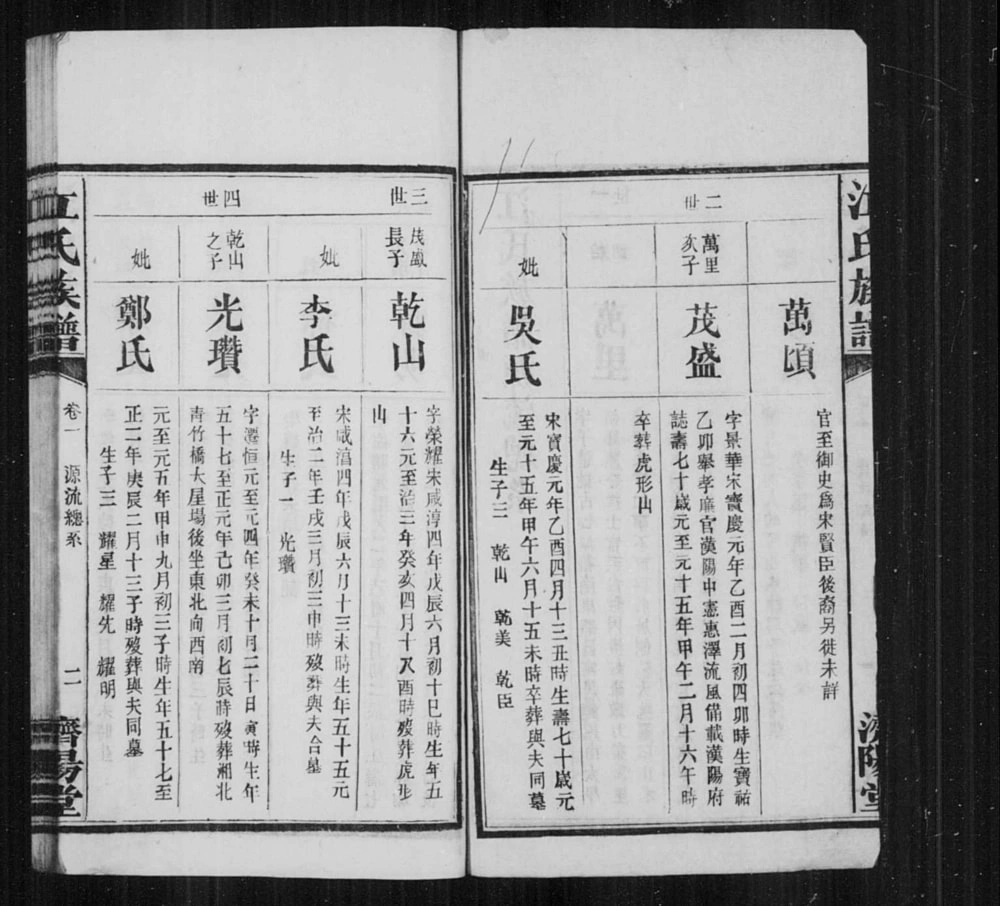 江氏族譜
濟陽堂
二世
萬頃
官至御史爲宋賢臣後裔另徙未詳
萬里
次子
茂盛
字景華宋寶慶元年乙酉二月初四卯時生寶祐
乙卯舉孝廉官漢陽申憲惠澤流風備載漢陽府
誌壽七十歲元至元十五年甲午二月十六午時
卒葬虎形山
妣
吳氏
宋寶慶元年乙酉四月十三丑時生壽七十歲元
至元十五年甲午六月十五未時卒葬與夫同墓
生子三 乾山 乾美 乾臣
三世
茂盛
長子
乾山
字榮耀宋咸淳四年戊辰六月初十巳時生年五
十六元至治三年癸亥四月十八酉時歿葬虎形
山
妣
李氏
宋咸淳四年戊辰六月十三未時生年五十五元
至治二年壬戌三月初三申時歿葬與夫合墓
生子一 光瓚
四世
乾山
之子
光瓚
字遷恒元至元四年癸未十月二十日寅時生年
五十七至正元年己卯三月初七辰時歿葬湘北
青竹橋大屋場後坐東北向西南
妣
鄭氏
元至元五年甲申九月初三子時生年五十七至
正二年庚辰二月十三子時歿葬與夫同墓
生子三 耀星 耀先 耀明
江氏族譜
卷一 源流總系 二
濟陽堂